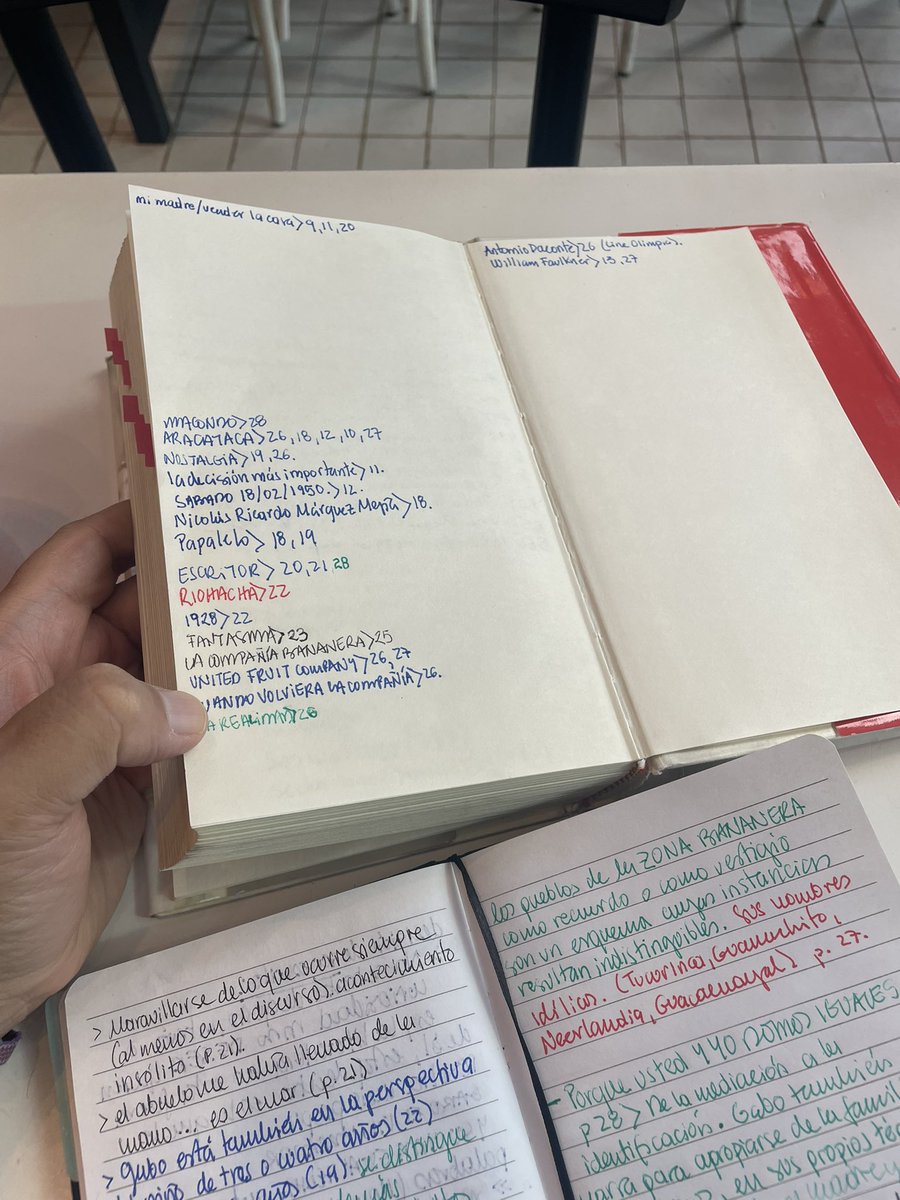 mi madre/vender la casa>9,11,20
MACONDO>28
ARACATACA>26,18,12,10,27
NOSTALGIA>19,26.
la decisión más importante>11.
SABADO 18/02/1950.>12.
Nicolás Ricardo Márquez Mejía>18.
Papalelo>18,19
ESCRITOR>20,21,28
RIOHACHA>22
1928>22
FANTASMA>23
LA COMPAÑÍA BANANERA>25
UNITED FRUIT COMPANY>26,27
UANDO VOLVIERA LA COMPAÑÍA>26.
Antonio Daconte>26 (Cine Olimpia).
William Faulkner>13,27
> Maravillarse de lo que ocurre siempre
(al menos en el discurso). acontecimiento
insólito (p.21).
> el abuelo me había llevado de la
mano... es el mar. (p.21)
> Gabo está también en la perspectiva
niño de tres o cuatro años (22)
años (19). se distingue
los pueblos de la ZONA BANANERA
como recuerdo o como vestigio
son un esquema cuyas instancias
resultan indistinguibles. Sus nombres
idílicos. (Tucurinca, Guamachito,
Neerlandia, Guacamayal) p. 27.
- Porque usted y yo SOMOS IGUALES
p28 > De la mediación a la
identificación. Gabo también
narra para apropiarse de la famili
en sus propios té